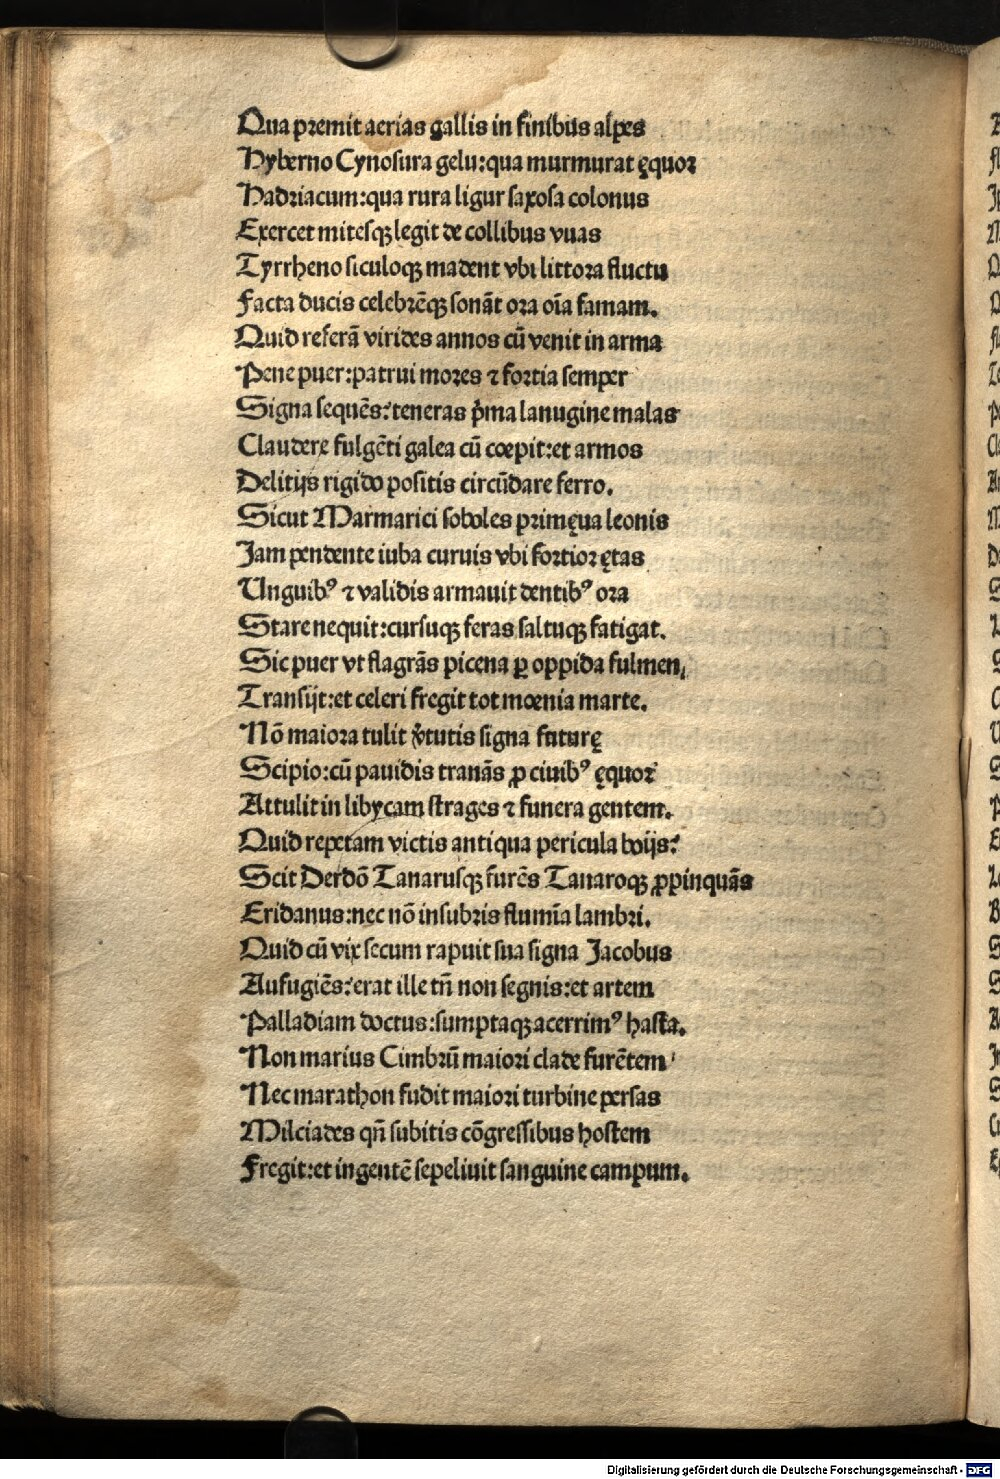 Qua premit aerias gallis in finibus alpes
Hyberno Cynosura gelu:qua murmurat ęquor
Hadriacum:qua rura ligur saxosa colonus
Exercet mitesqꝫ legit de collibus vuas
Tyrrheno siculoqꝫ madent vbi littora fluctu
Facta ducis celebrēqꝫ sonāt ora oīa famam.
Quid referā virides annos cū venit in arma
Pene puer:patrui mores ⁊ fortia semper
Signa sequēs:teneras p̄ma lanugine malas
Claudere fulgēti galea cū cœpit:et armos
Delitijs rigido positis circūdare ferro.
Sicut Marmarici soboles primęua leonis
Jam pendente iuba curuis vbi fortior ętas
Unguibꝰ ⁊ validis armauit dentibꝰ ora
Stare nequit:cursuqꝫ feras saltuqꝫ fatigat.
Sic puer vt flagrās picena ꝑ oppida fulmen,
Transijt:et celeri fregit tot mœnia marte.
Nō maiora tulit v̓tutis signa futurę
Scipio:cū pauidis tranās ꝓ ciuibꝰ ęquor
Attulit in libycam strages ⁊ funera gentem.
Quid repetam victis antiqua pericula boijs:
Scit Derdō Tanarusqꝫ furēs Tanaroqꝫ ꝓpinquās
Eridanus:nec nō insubris flumīa lambri.
Quid cū vix secum rapuit sua signa Jacobus
Aufugiēs:erat ille tn̄ non segnis:et artem
Palladiam doctus:sumptaqꝫ acerrimꝰ hasta.
Non marius Cimbrū maiori clade furētem
Nec marathon fudit maiori turbine persas
Milciades qn̄ subitis cōgressibus hostem
Fregit:et ingentē sepeliuit sanguine campum.
Digitalisierung gefördert durch die Deutsche Forschungsgemeinschaft - DFG